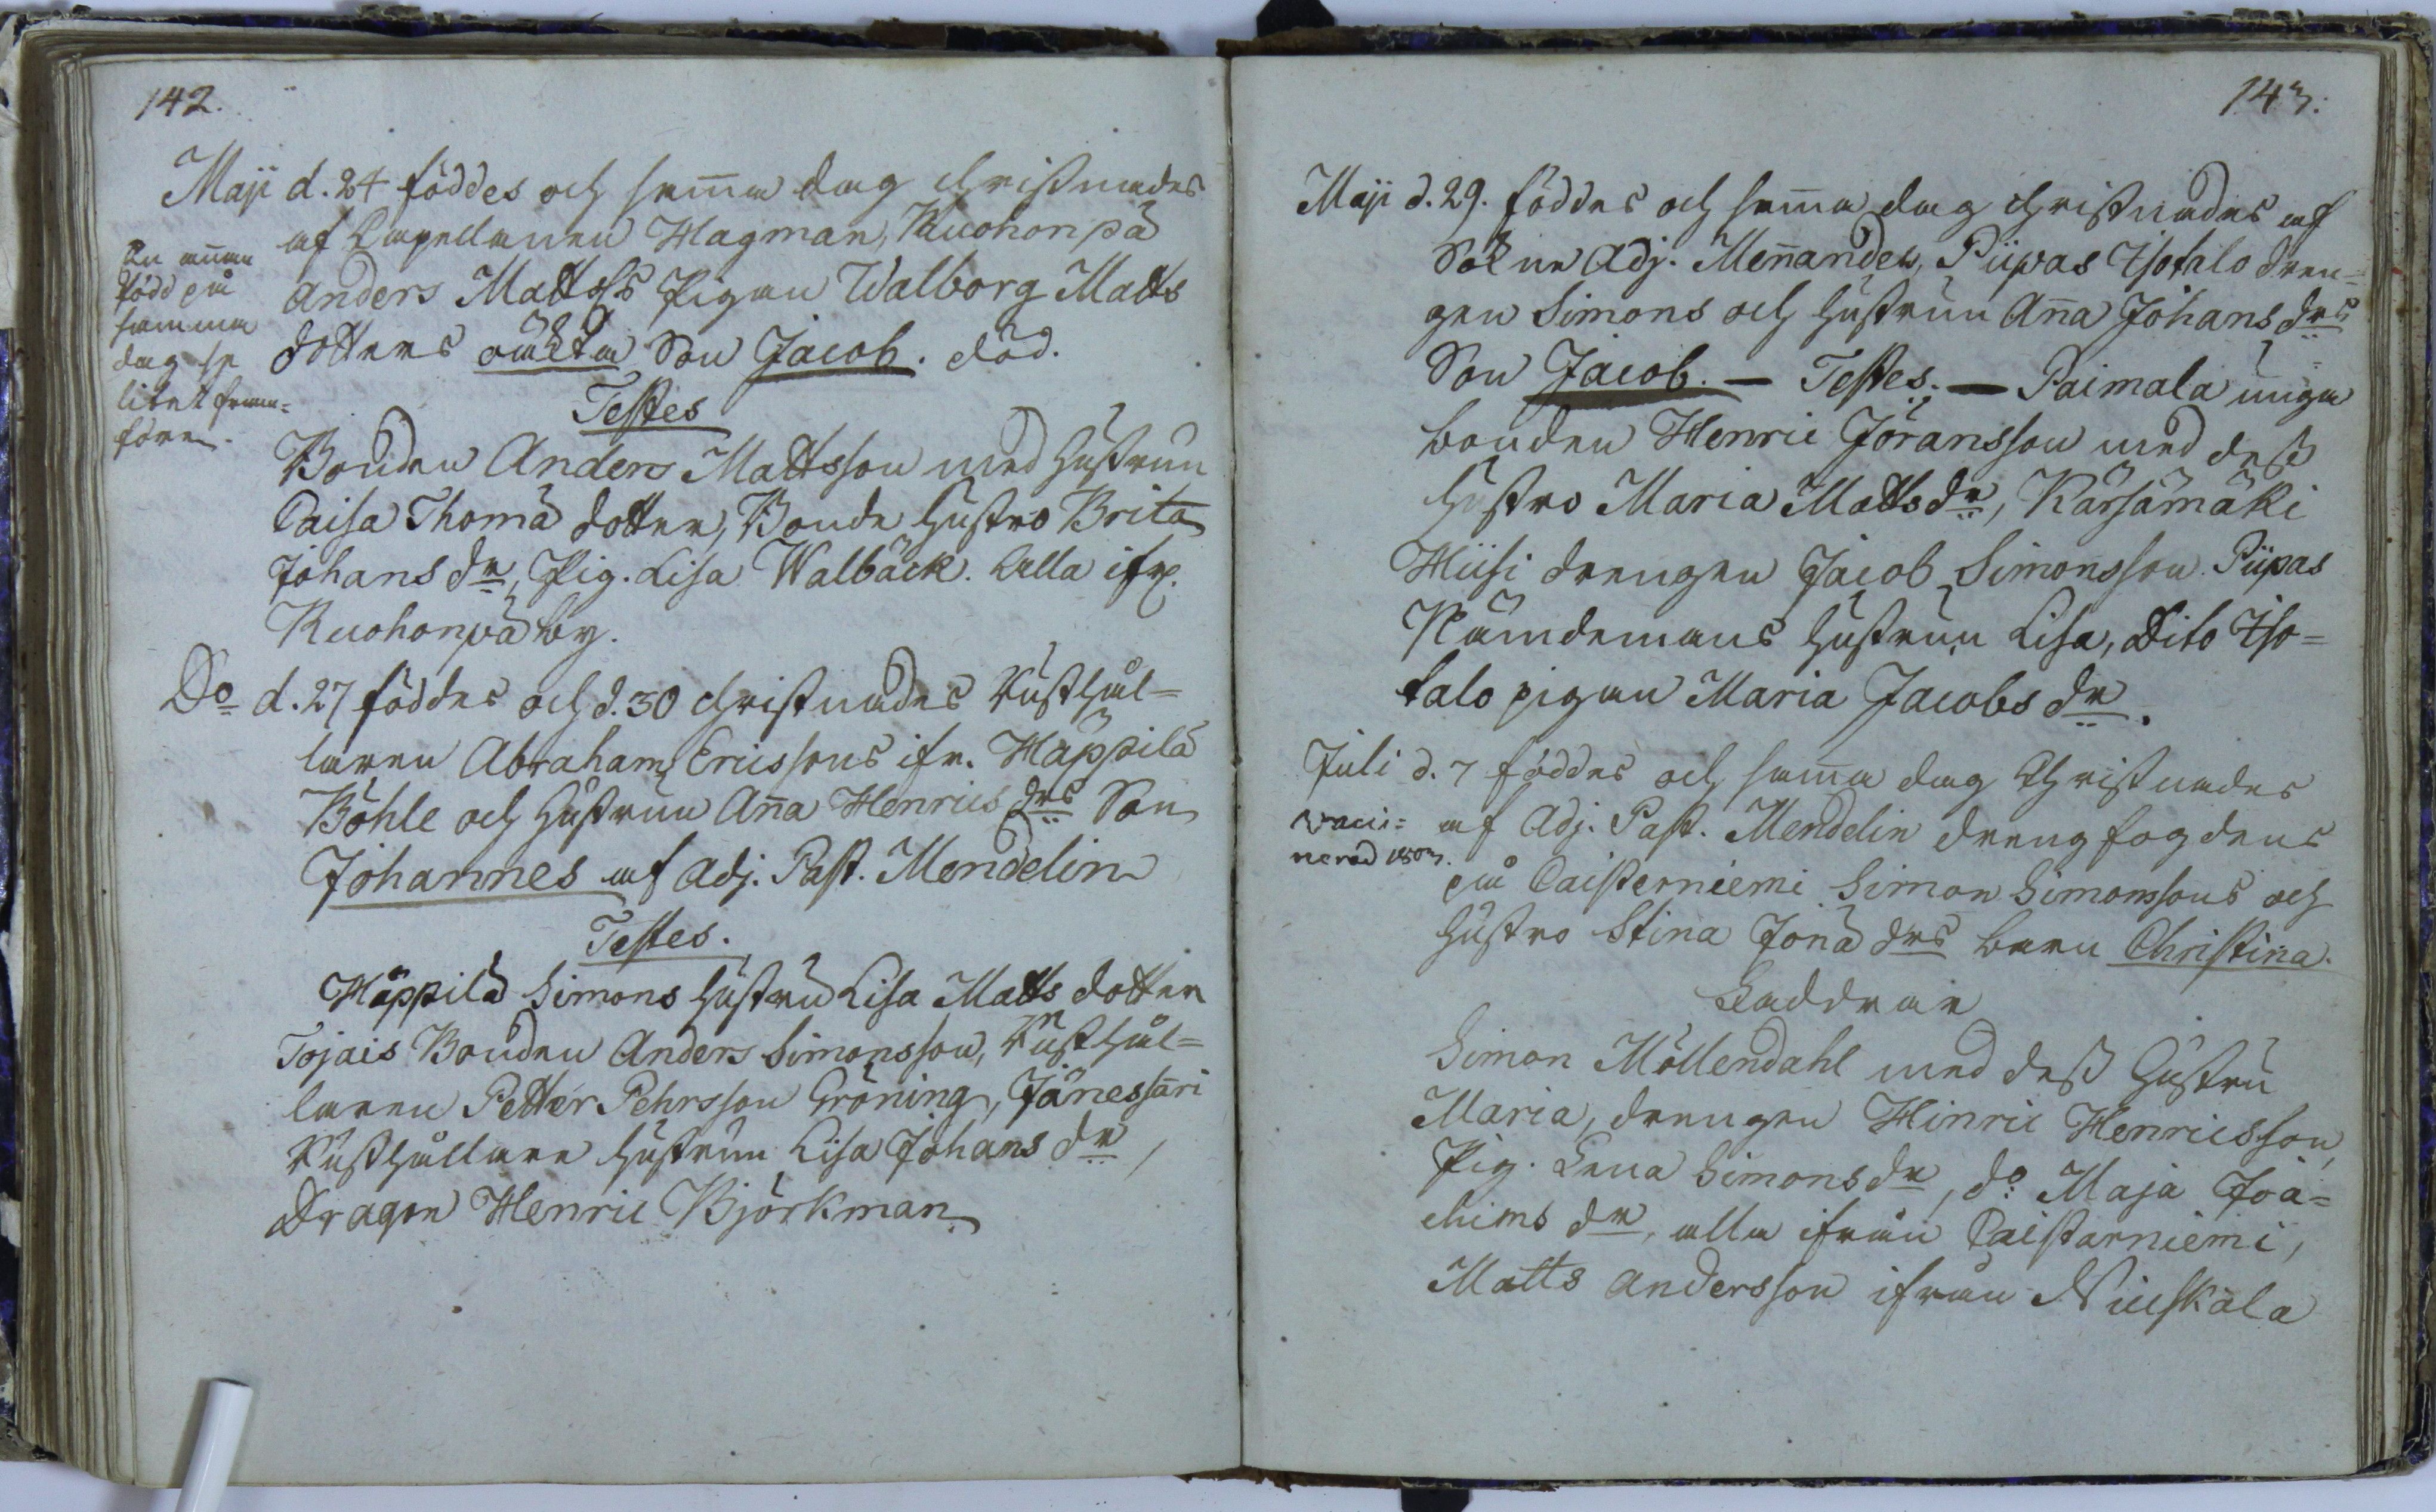 142.
Maji d. 24 föddes och sam̄a dag christnades
af Capellanen Hagman, Ruohonpä
Anders Mattss Pigan Walborg Matts
dotters oäkta Son Jacob. död.
En annan
född på
samma
dag se
litet fram=
före.
Testes
Bonden Anders Mattsson med hustrun
Caisa Thomä dotter, Bonde hustro Brita
Johans dr, Pig. Lisa Walbäck. Alla ifr.
Ruohonpä by.
Do d. 27 föddes och d. 30 christnades Rusthål=
laren Abraham Ericssons ifr. Häppilä
Böhle och hustrun An̄a Henrics drs Son
Johannes af Adj. Past. Mendelin
Testes.
Häppilä Simons hustru Lisa Matts dotter
Tojais Bonden Anders Simonsson, Rusthål=
laren Petter Pehrsson Gröning, Jänessari
Rusthållare hustrun Lisa Johans dr,
Dragon Henric Björkman
143.
Maji d. 29. föddes och sam̄a dag christnades af
Sokne Adj. Men̄ander, Piipas Isotalo dren=
gen Simons och hustrun An̄a Johans drs
Son Jacob. — Testes. — Paimala unga
bonden Henric Jöransson med dess
hustro Maria Matts dr, Kärsämäki
Hiisi drengen Jacob Simonsson. Piipas
Nämdemans hustrun Lisa, Dito Iso=
talo pigan Maria Jacobs dr.
Juli d. 7 föddes och sam̄a dag Christnades
vacci=
nerad 1803.
af Adj. Past. Mendelin drengfogdens
på Caisterniemi Simon Simonssons och
hustro Stina Jonä drs barn Christina.
Faddrar
Simon Möllendahl med dess hustru
Maria, drengen Hinric Henricsson,
Pig. Lena Simons dr, do Maja Joa=
chims dr, alla ifrån Caistarniemi,
Matts Andersson ifrån Niuskala